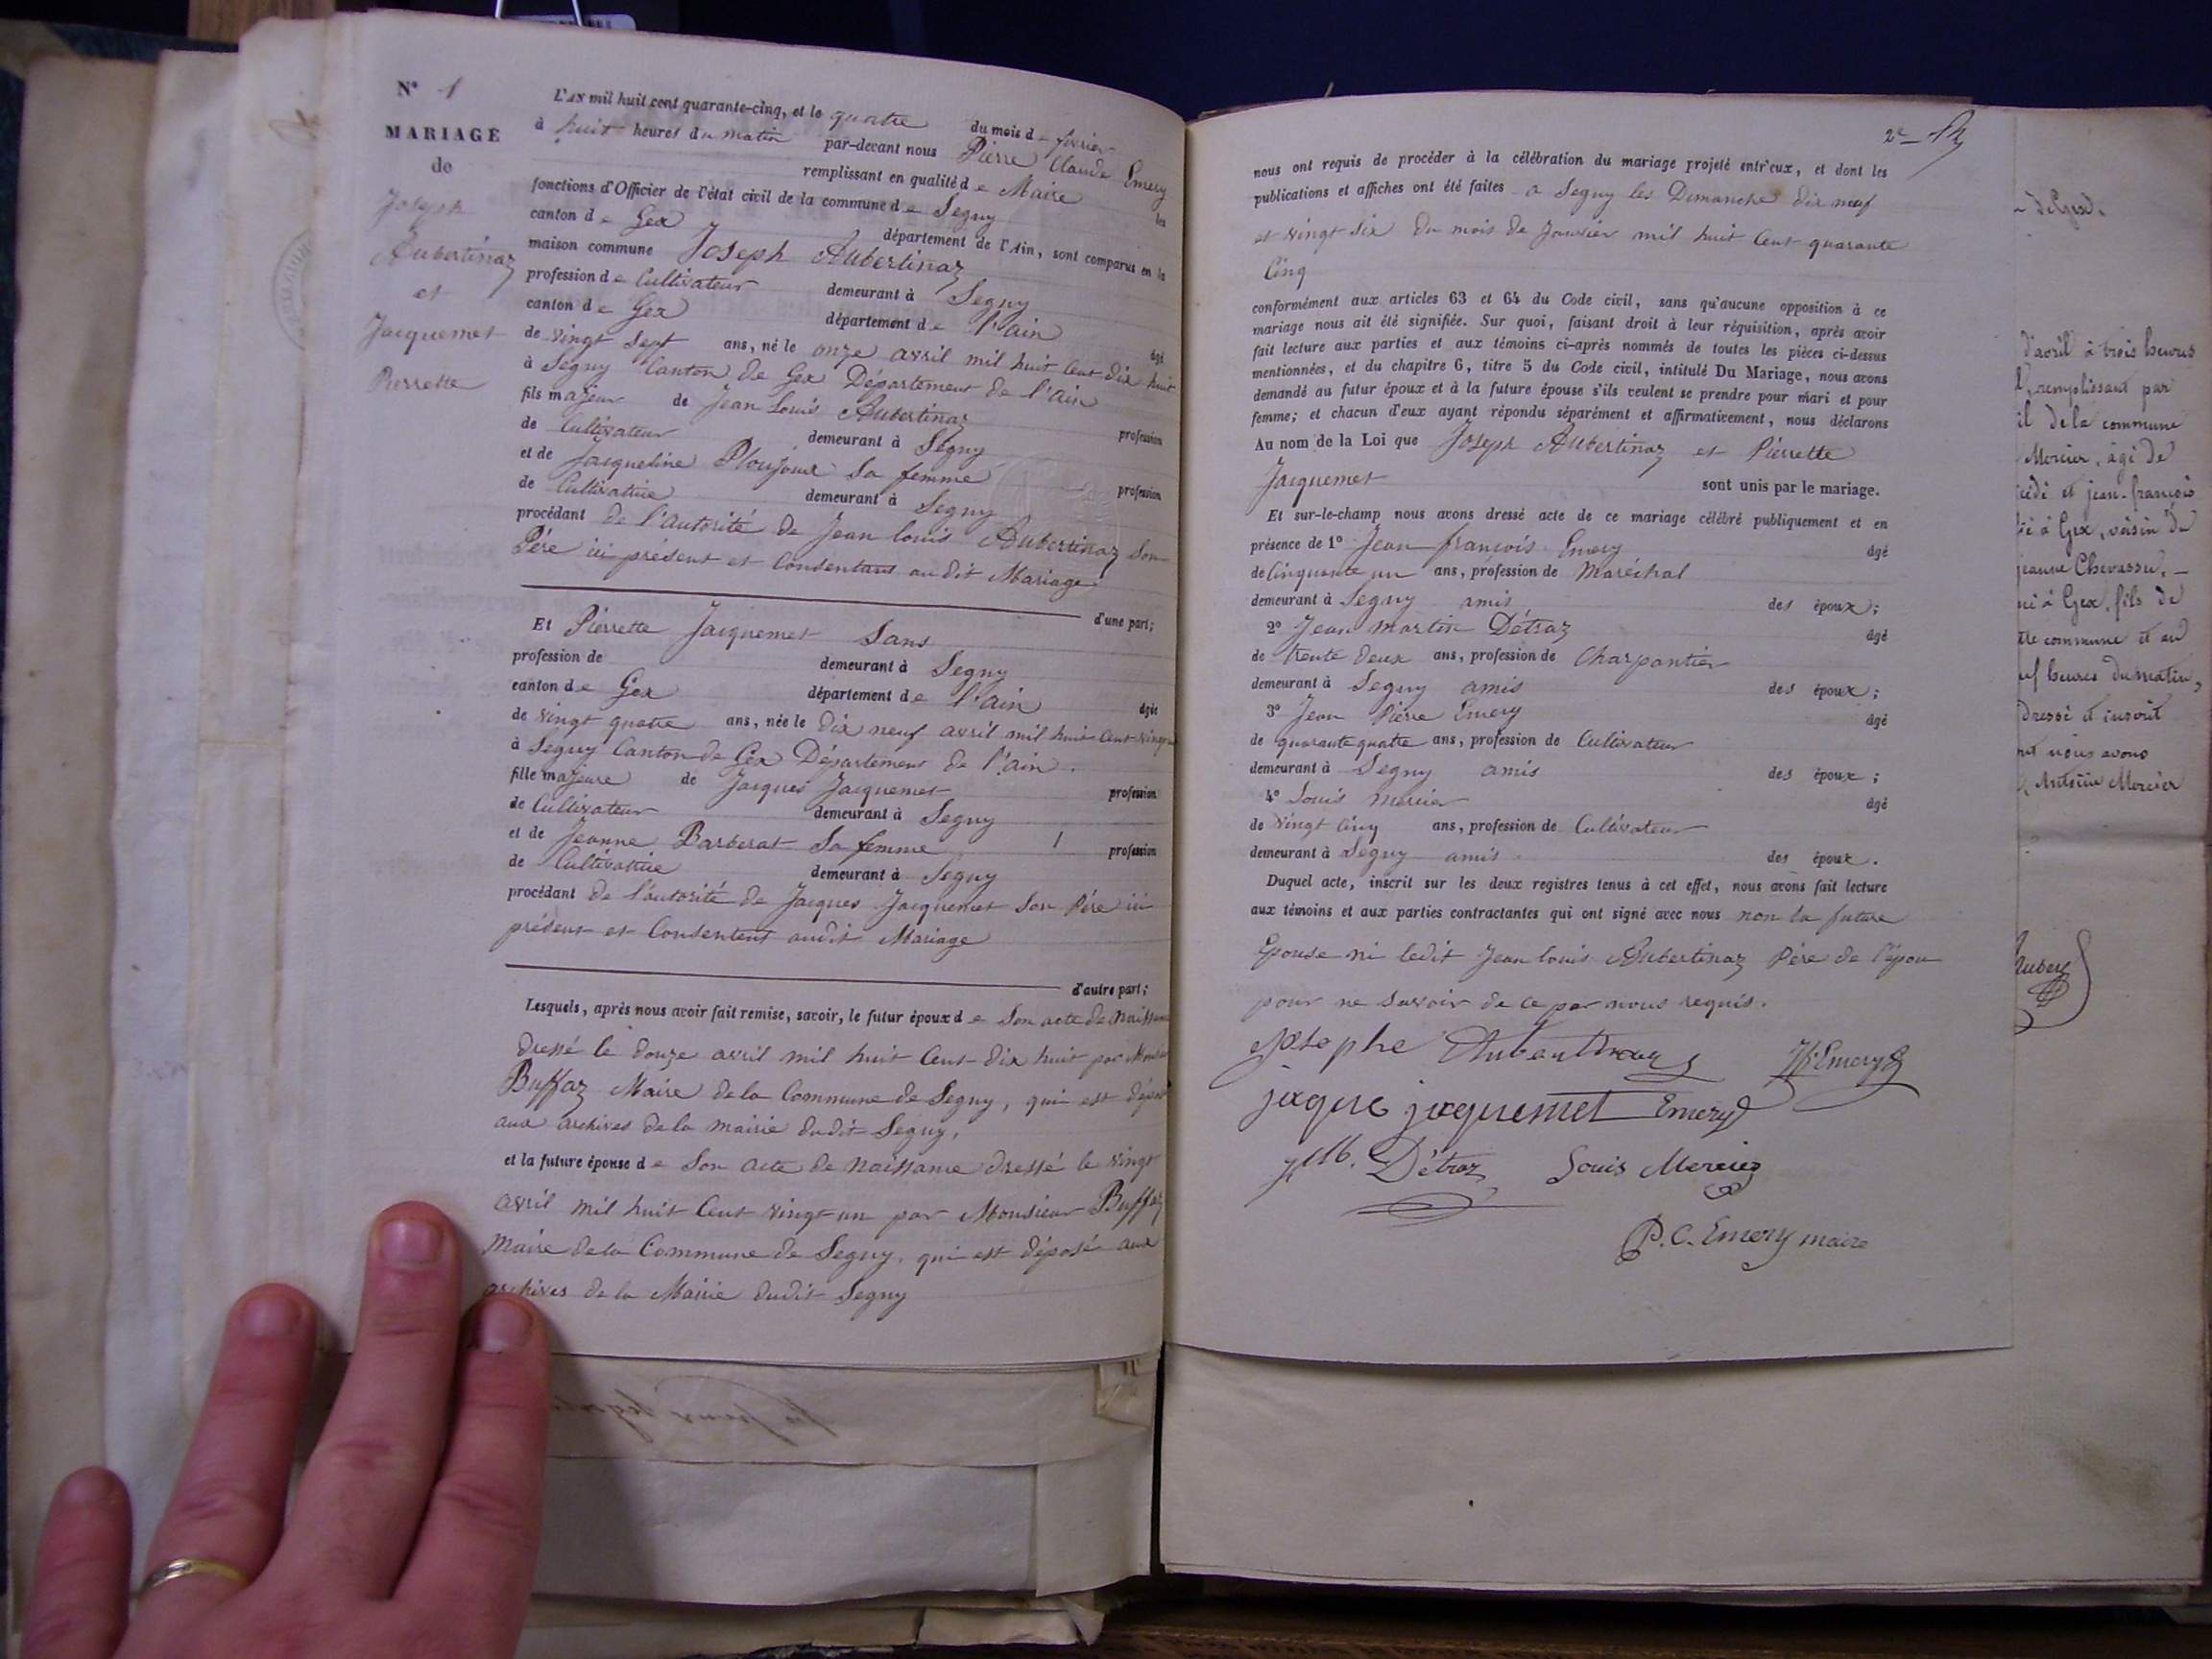 N° 1
MARIAGE
de
Joseph
Aubertinaz
et
Jacquemet
Pierrette
L'AN mil huit cent quarante-cinq, et le quatre du mois de fevrier
à huit heures du matin par-devant nous Pierre Claude Emery
remplissant en qualité de Maire les
fonctions d'Officier de l'état civil de la commune de Segny
canton de Gex département de l'Ain, sont comparus en la
maison commune Joseph Aubertinaz
profession de Cultivateur demeurant à Segny
canton de Gex département de l'ain âgé
de vingt Sept ans, né le onze avril mil huit Cent dix huit
à Segny Canton de Gex Département de l'ain
fils majeur de Jean Louis Aubertinaz profession
de Cultivateur demeurant à Segny
et de Jacqueline Ploujoux Sa femme profession
de Cultivatrice demeurant à Segny
procédant de l'autorité de Jean louis Aubertinaz Son
Père ici présent et Consentant audit Mariage
d'une part;
Et Pierrette Jacquemet Sans
profession de demeurant à Segny
canton de Gex département de l'ain âgée
de vingt quatre ans, née le Dix neuf avril mil huit Cent vingt un
à Segny Canton de Gex Département de l'ain.
fille majeure de Jacques Jacquemet profession
de Cultivateur demeurant à Segny
et de Jeanne Barberat Sa femme profession
de Cultivatrice demeurant à Segny
procédant de l'autorité de Jacques Jacquemet Son Père ici
présent et Consentent audit Mariage
d'autre part;
Lesquels, après nous avoir fait remise, savoir, le futur époux de Son acte de Naissance
dressé le douze avril mil huit Cent dix huit par Monsieur
Buffaz Maire de la Commune de Segny, qui est déposé
aux archives de la mairie dudit Segny,
et la future épouse de Son acte de Naissance dressé le vingt
avril mil huit Cent vingt un par Monsieur Buffaz
Maire de la Commune de Segny, qui est déposé aux
archives de la Mairie dudit Segny
2e
nous ont requis de procéder à la célébration du mariage projeté entr'eux, et dont les
publications et affiches ont été faites a Segny les Dimanche dix neuf
et vingt Six du mois de Janvier mil huit Cent quarante
Cinq
conformément aux articles 63 et 64 du Code civil, sans qu'aucune opposition à ce
mariage nous ait été signifiée. Sur quoi, faisant droit à leur réquisition, après avoir
fait lecture aux parties et aux témoins ci-après nommés de toutes les pièces ci-dessus
mentionnées, et du chapitre 6, titre 5 du Code civil, intitulé Du Mariage, nous avons
demandé au futur époux et à la future épouse s'ils veulent se prendre pour mari et pour
femme; et chacun d'eux ayant répondu séparément et affirmativement, nous déclarons
Au nom de la Loi que Joseph Aubertinaz et Pierrette
Jacquemet sont unis par le mariage.
Et sur-le-champ nous avons dressé acte de ce mariage célébré publiquement et en
présence de 1° Jean françois Emery âgé
de Cinquante un ans, profession de Maréchal
demeurant à Segny amis des époux;
2° Jean Martin Détraz âgé
de trente deux ans, profession de Charpantier
demeurant à Segny amis des époux;
3° Jean Pierre Emery âgé
de quarante quatre ans, profession de Cultivateur
demeurant à Segny amis des époux;
4° Louis mercier âgé
de vingt Cinq ans, profession de Cultivateur
demeurant à Segny amis des époux.
Duquel acte, inscrit sur les deux registres tenus à cet effet, nous avons fait lecture
aux témoins et aux parties contractantes qui ont signé avec nous non la future
Epouse ni ledit Jean louis Aubertinaz Père de l'épou
pour ne Savoir de ce par nous requis.
Josephe Aubertinaz Jf Emery
jaque jaquemet Emery
J M. Détraz Louis Mercier
P. C. Emery maire
de Gex.
d'avril à trois heures
remplissant par
de la commune
Mercier, âgé de
et jean-françois
à Gex, voisin de
jeanne Chevassu,
né à Gex, fils de
commune et au
heures du matin,
Dressé et inscrit
nous avons
Antoine Mercier